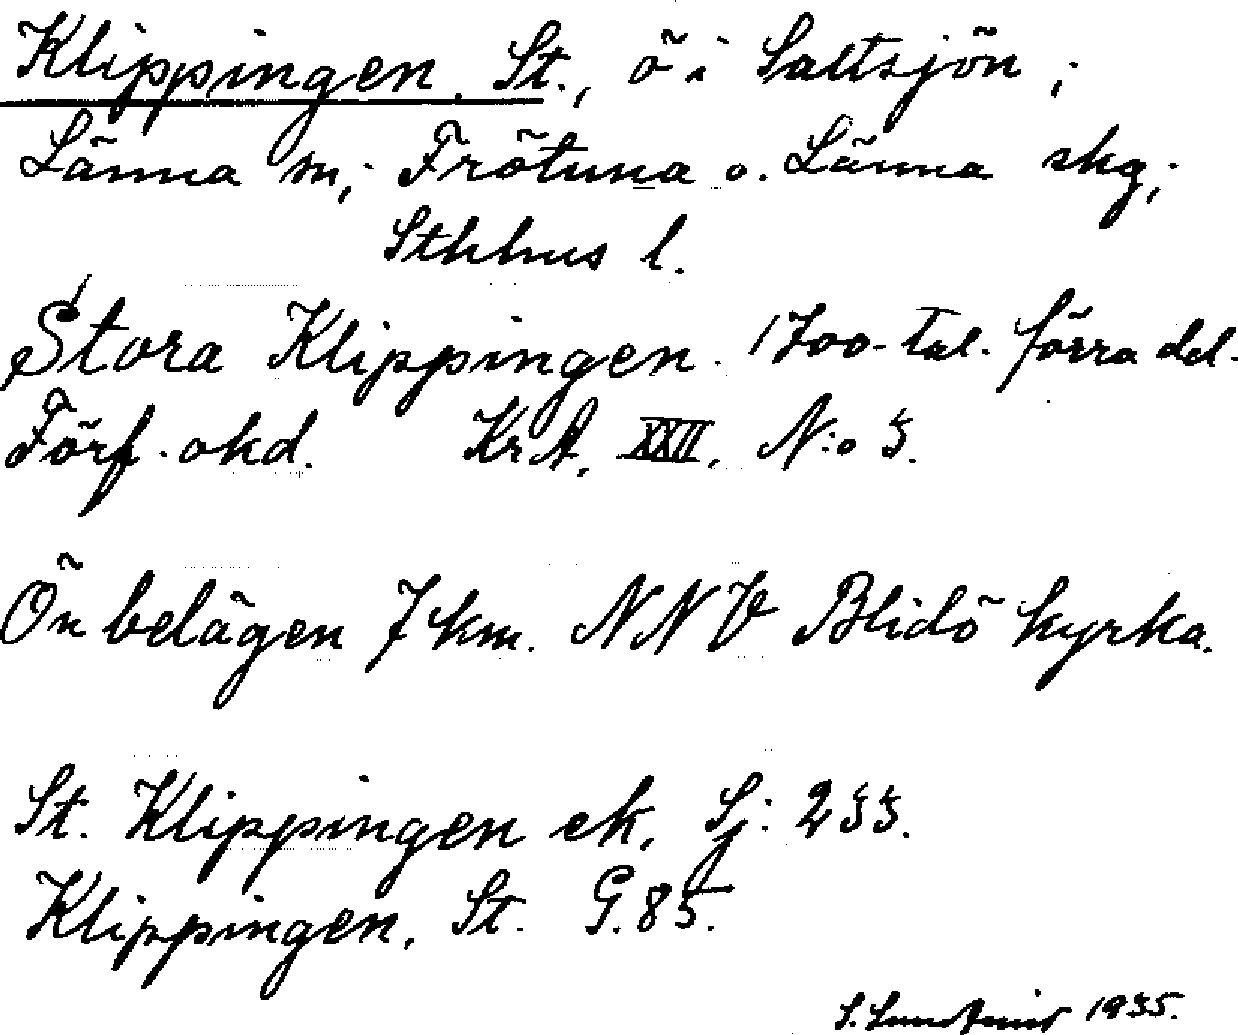 Klippingen, St., ö i Saltsjön;
Länna sn; Frötuna o. Länna skg;
Sthlms l.
Stora Klippingen. 1700-tal. förra del.
Förf. okd. KrA. XXII, N:o 3.
Ön belägen 7 km. NNV Blidö kyrka.
St. Klippingen ek. Sj: 233.
Klippingen, St. G.85.
S. 1935.